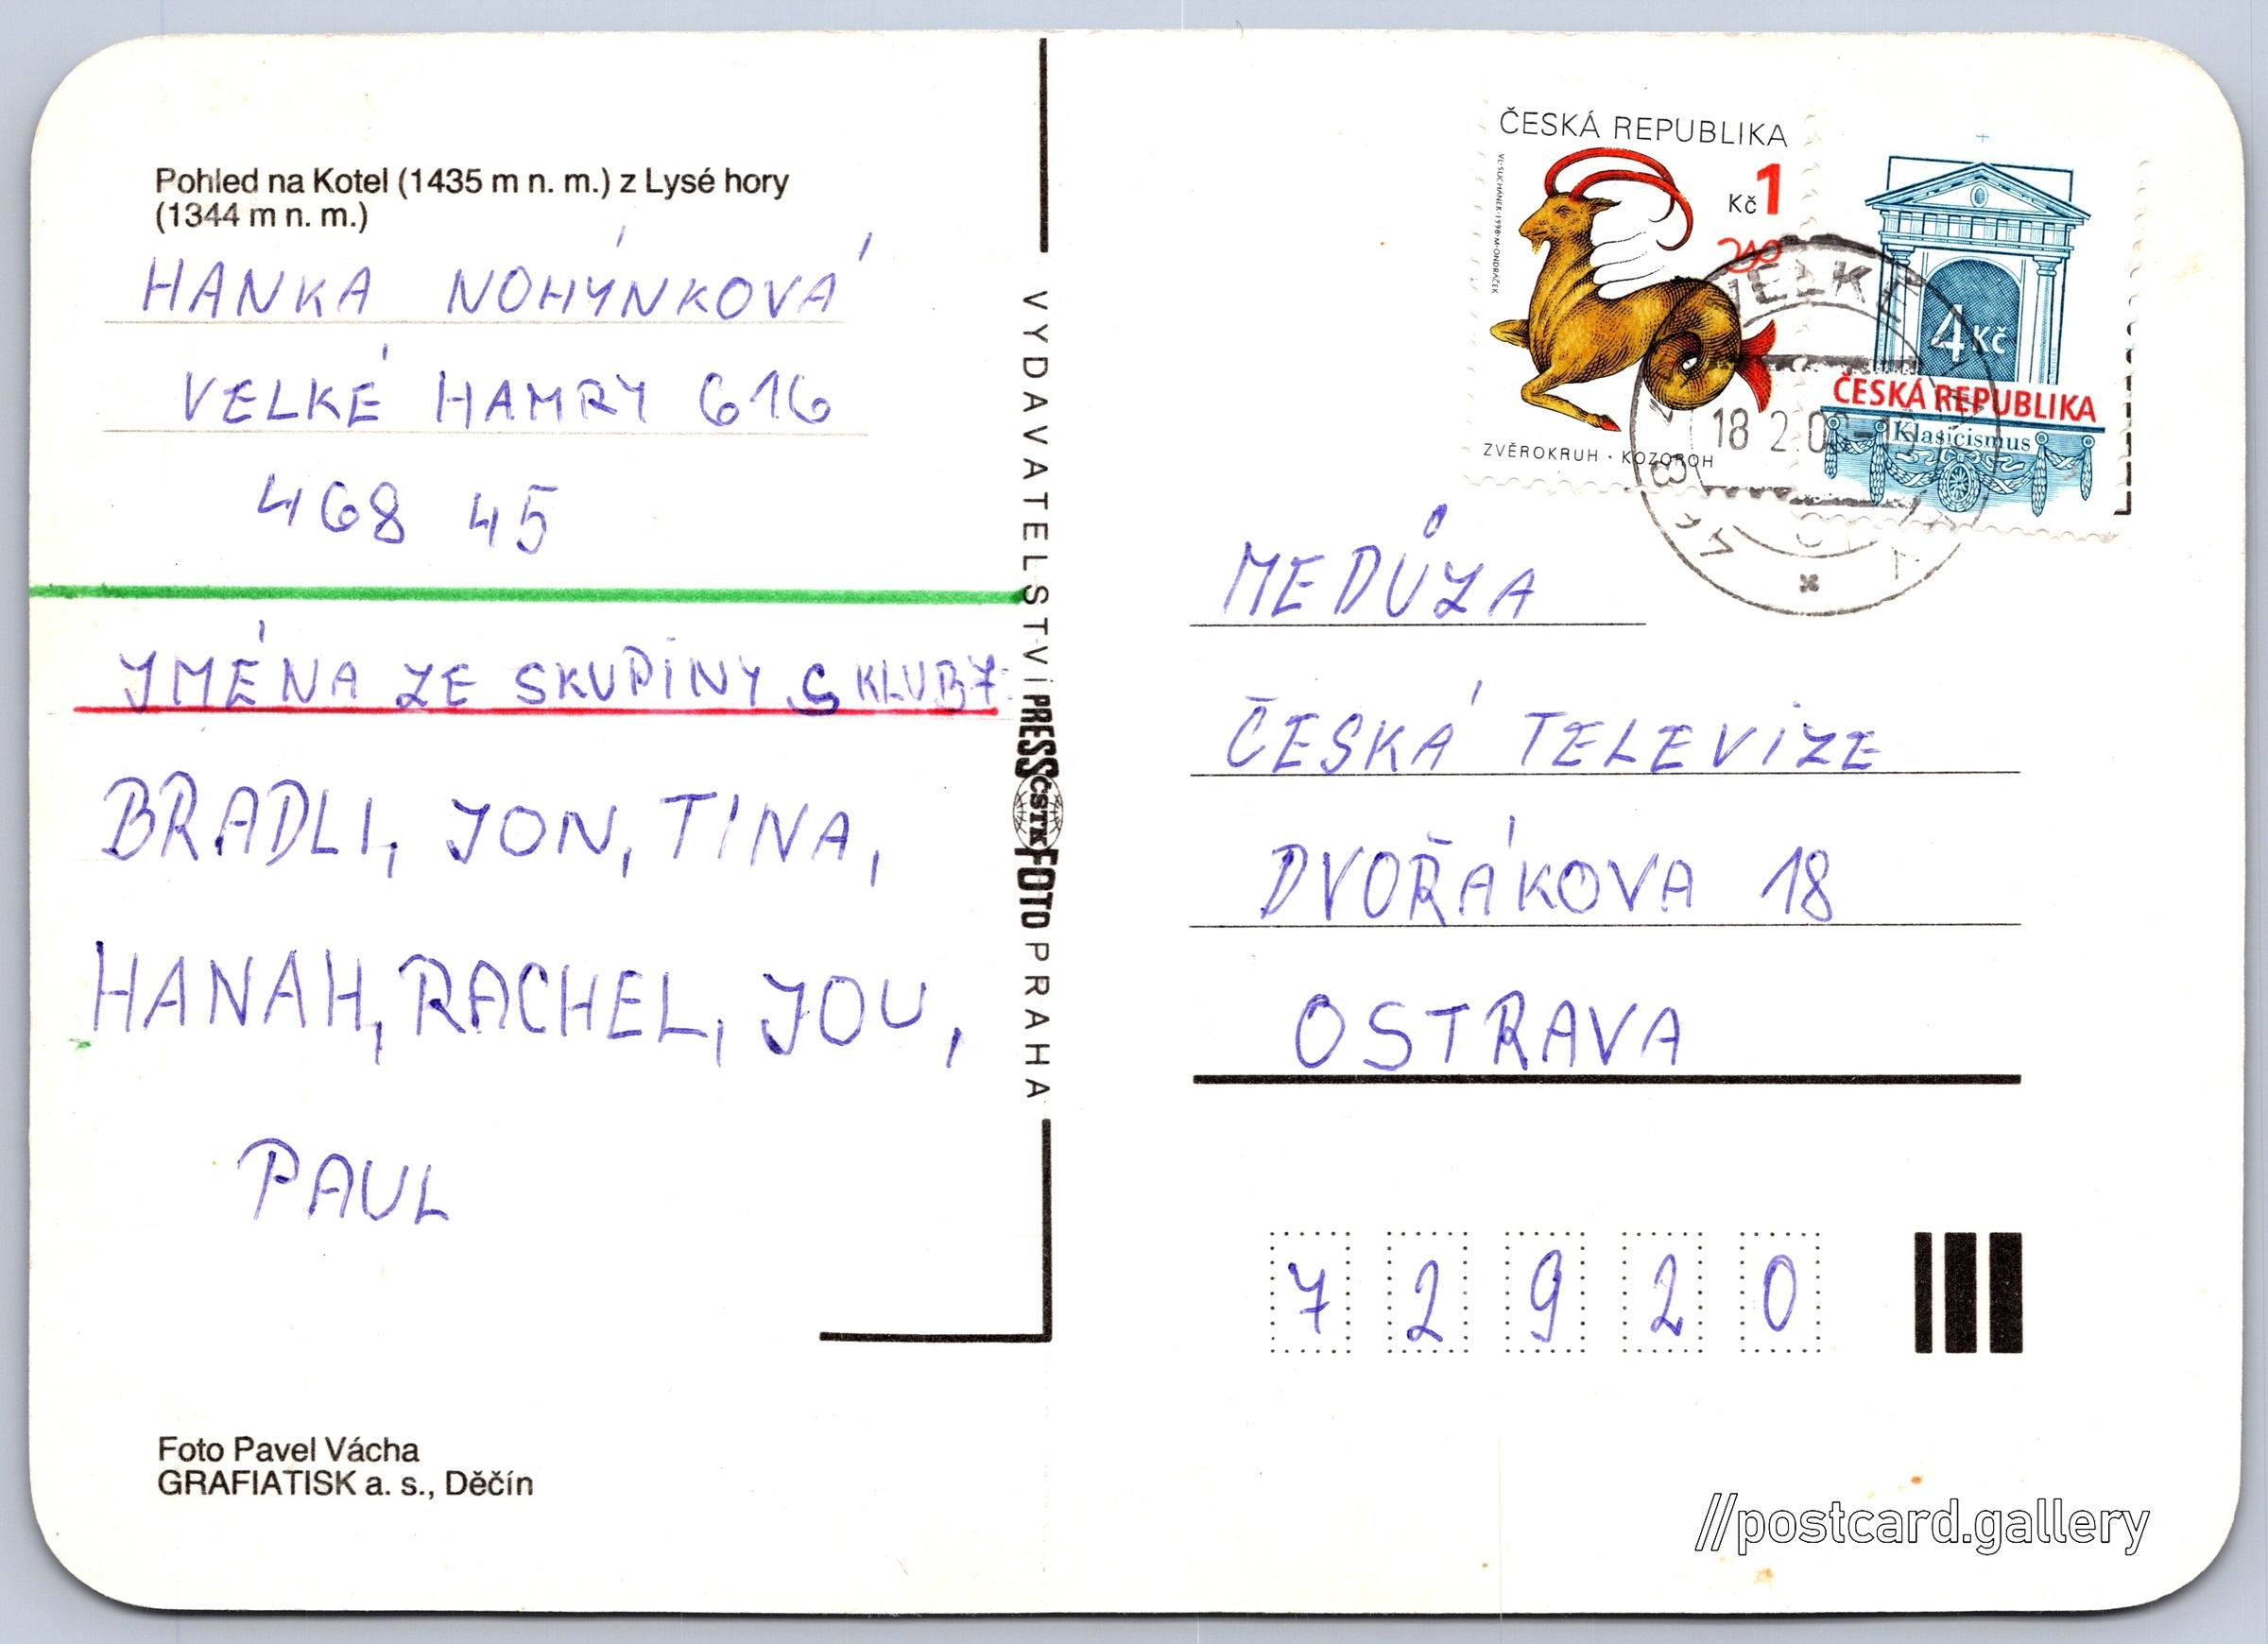 Pohled na Kotel (1435 m n. m.) z Lysé hory
(1344 m n. m.)
HANKA NOHÝNKOVÁ
VELKÉ HAMRY 616
468 45
JMÉNA ZE SKUPINY S KLUB 7:
BRADLI, JON, TINA,
HANAH, RACHEL, JOU,
PAUL
Foto Pavel Vácha
GRAFIATISK a. s., Děčín
VYDAVATELSTVÍ PRESSFOTO PRAHA
ČSTK
ČESKÁ REPUBLIKA
Kč 1
VL·SUCHÁNEK·1998·M·ONDRÁČEK
ZVĚROKRUH · KOZOROH
4 Kč
ČESKÁ REPUBLIKA
Klasicismus
18 2.0
MEDŮZA
ČESKÁ TELEVIZE
DVOŘÁKOVA 18
OSTRAVA
7 2 9 2 0
//postcard.gallery